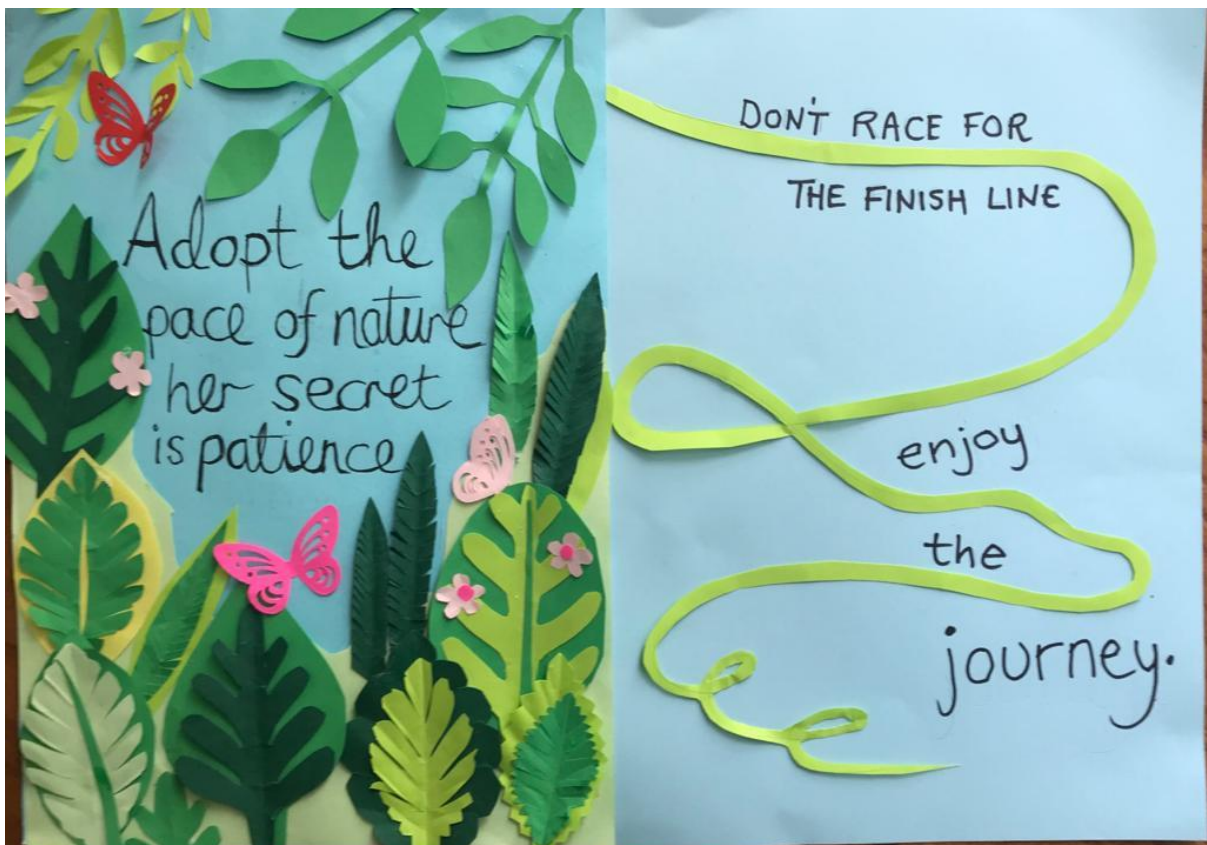 Adopt the
pace of nature
her secret
is patience
DON'T RACE FOR
THE FINISH LINE
enjoy
the
journey.